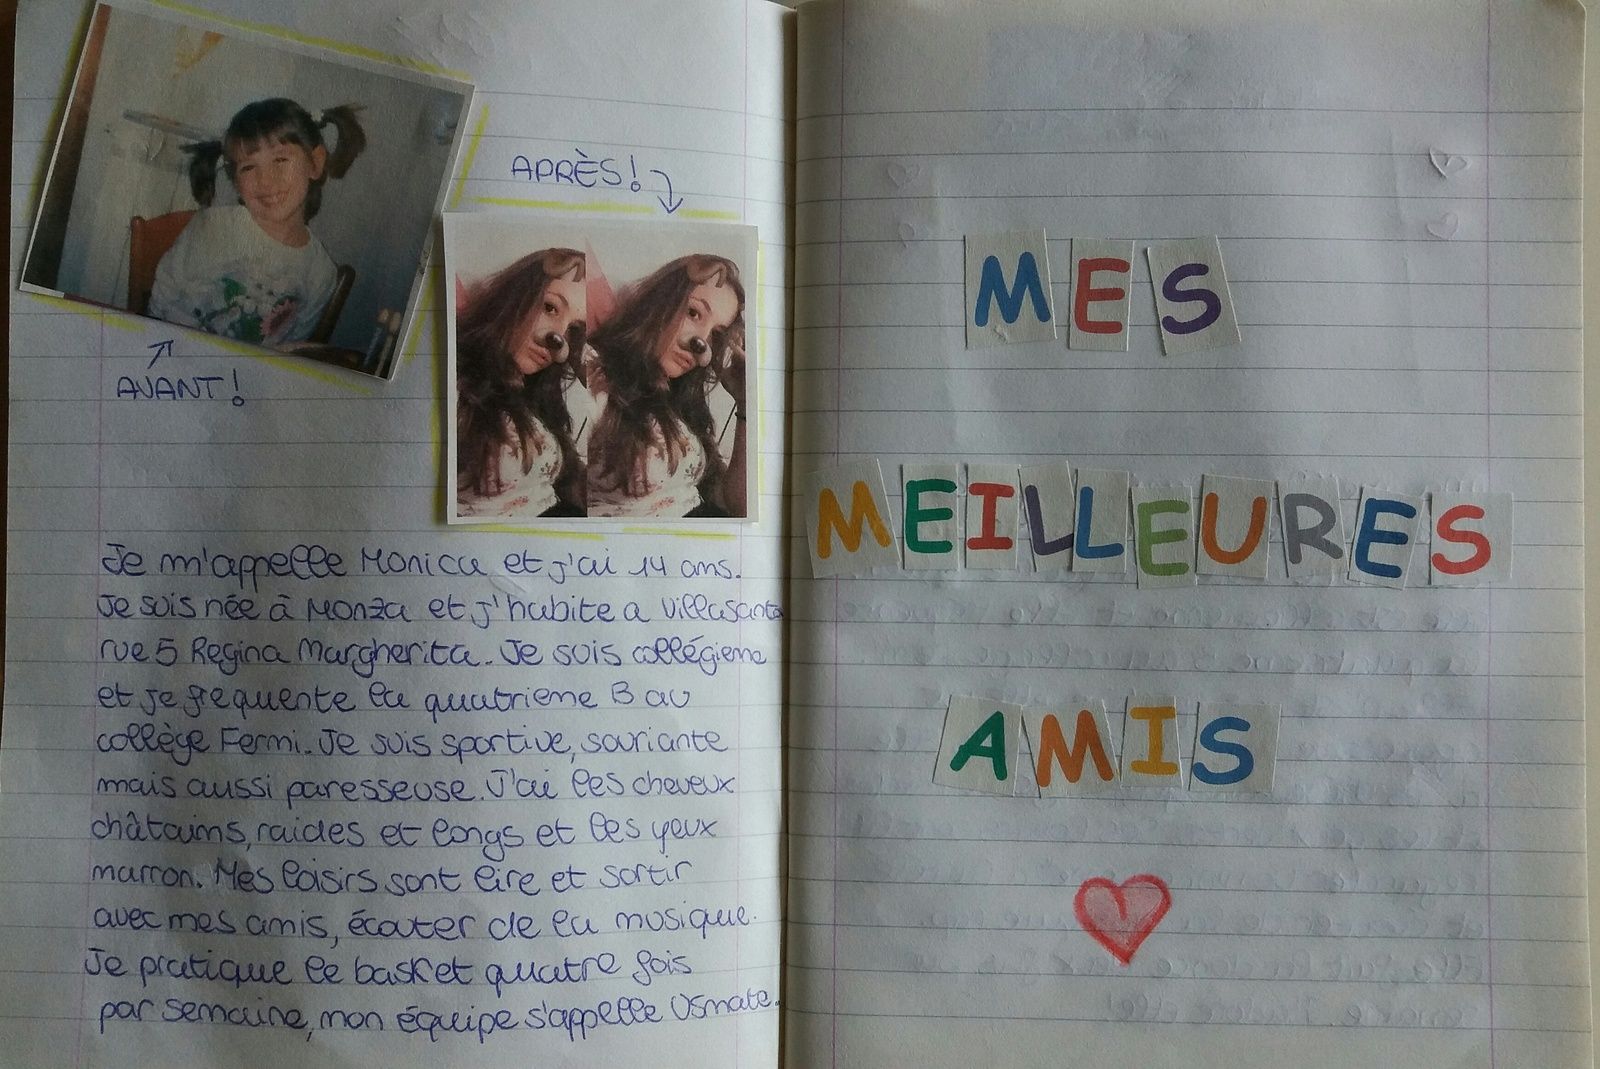 APRÈS!
AVANT!
Je m'appelle Monica et j'ai 14 ans.
Je suis née à Monza et j'habite a Villasanta
rue 5 Regina Margherita. Je suis collégiene
et je frequente la quatrieme B au
collège Fermi. Je suis sportive, souriante
mais aussi paresseuse. J'ai les cheveux
châtains, raides et longs et les yeux
marron. Mes loisirs sont lire et sortir
avec mes amis, écouter de la musique.
Je pratique le basket quatre fois
par semaine, mon équipe s'appelle Usmate.
MES
MEILLEURES
AMIS